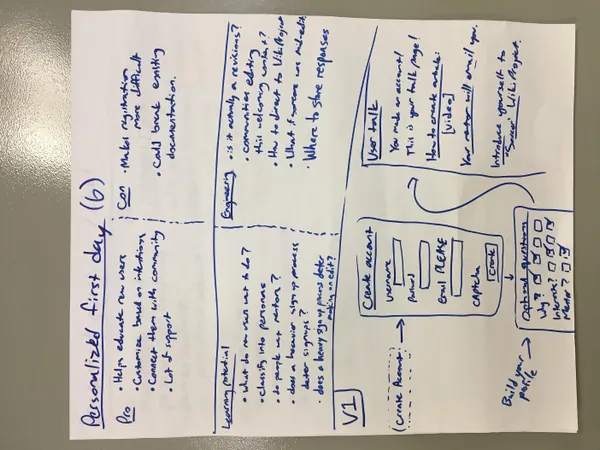 Personalized first day (6)
Pro
• Helps educate new users
• Customize based on intentions
• Connect them with community
• Lot of support
Con
• Makes registration
more difficult
• Could break existing
documentation.
Learning potential
• what do new users want to do?
• classify into personas
• do people want mentors?
• does a heavier sign up process
deter signups?
• does a heavy sign up process deter
making an edit?
Engineering
• is it actually a revisions?
• communities editing
this welcoming content?
• How to direct to WikiProject
• What if someone was mid-edit
• Where to store responses
V1
(Create Account)
Create account
username
Email PLEASE
captcha
Create
Build your
profile
Optional questions
Why?
Interests?
Mentor?
User talk
You made an account!
This is your talk page!
How to create article:
[video]
Your mentor will email you.
Introduce yourself to
"Soccer" WikiProject.